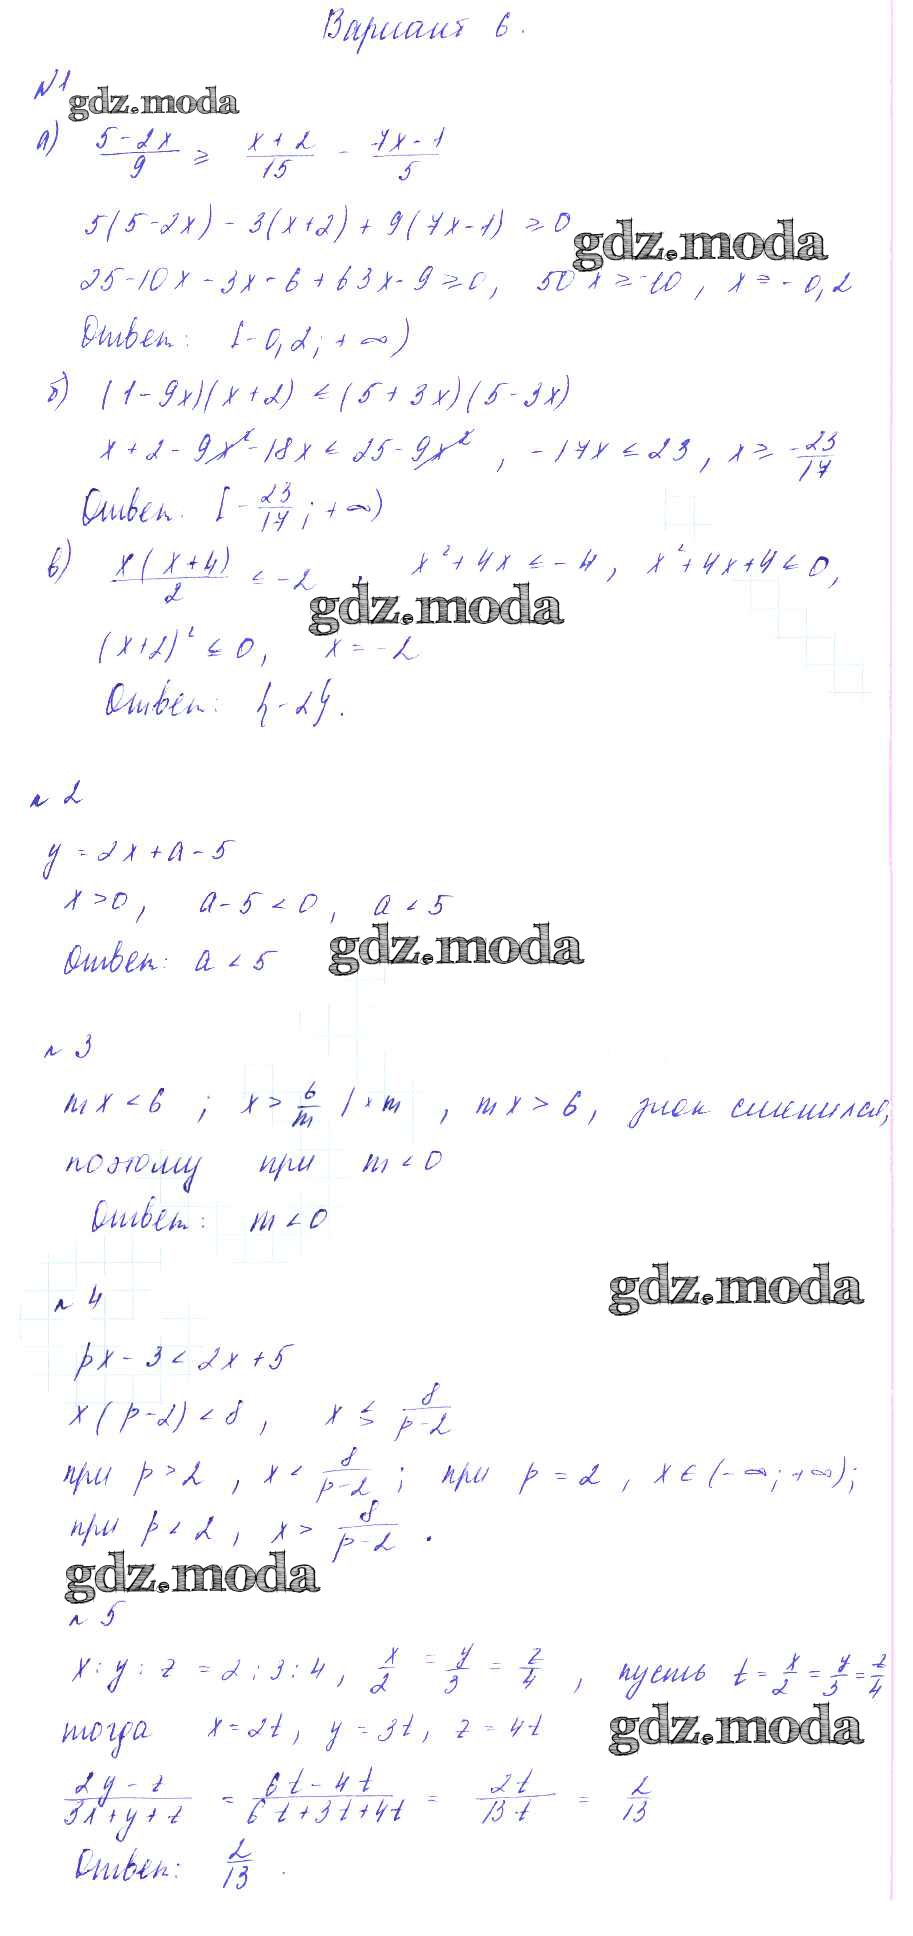 Вариант 6.
№1
gdz.moda
а) (5-2x)/9 ≥ (x+2)/15 - (7x-1)/5
5(5-2x) - 3(x+2) + 9(7x-1) ≥ 0
gdz.moda
25-10x-3x-6+63x-9≥0, 50x≥-10, x≥-0,2
Ответ: [-0,2; +∞)
б) (1-9x)(x+2) ≤ (5+3x)(5-3x)
x+2-9x²-18x≤25-9x², -17x≤23, x≥-23/17
Ответ. [-23/17; +∞)
в) x(x+4)/2 ≤ -2, x²+4x≤-4, x²+4x+4≤0,
gdz.moda
(x+2)²≤0, x=-2
Ответ: {-2}.
№2
y=2x+a-5
x>0, a-5<0, a<5
Ответ: a<5
gdz.moda
№3
mx<6; x>6/m |·m, mx>6, знак сменился,
поэтому при m<0
Ответ: m<0
gdz.moda
№4
px-3<2x+5
x(p-2)<8, x≶8/(p-2)
при p>2, x<8/(p-2); при p=2, x∈(-∞;+∞);
при p<2, x>8/(p-2).
gdz.moda
№5
x:y:z=2:3:4, x/2=y/3=z/4, пусть t=x/2=y/3=z/4
тогда x=2t, y=3t, z=4t
gdz.moda
(2y-z)/(3x+y+z) = (6t-4t)/(6t+3t+4t) = 2t/13t = 2/13
Ответ: 2/13.